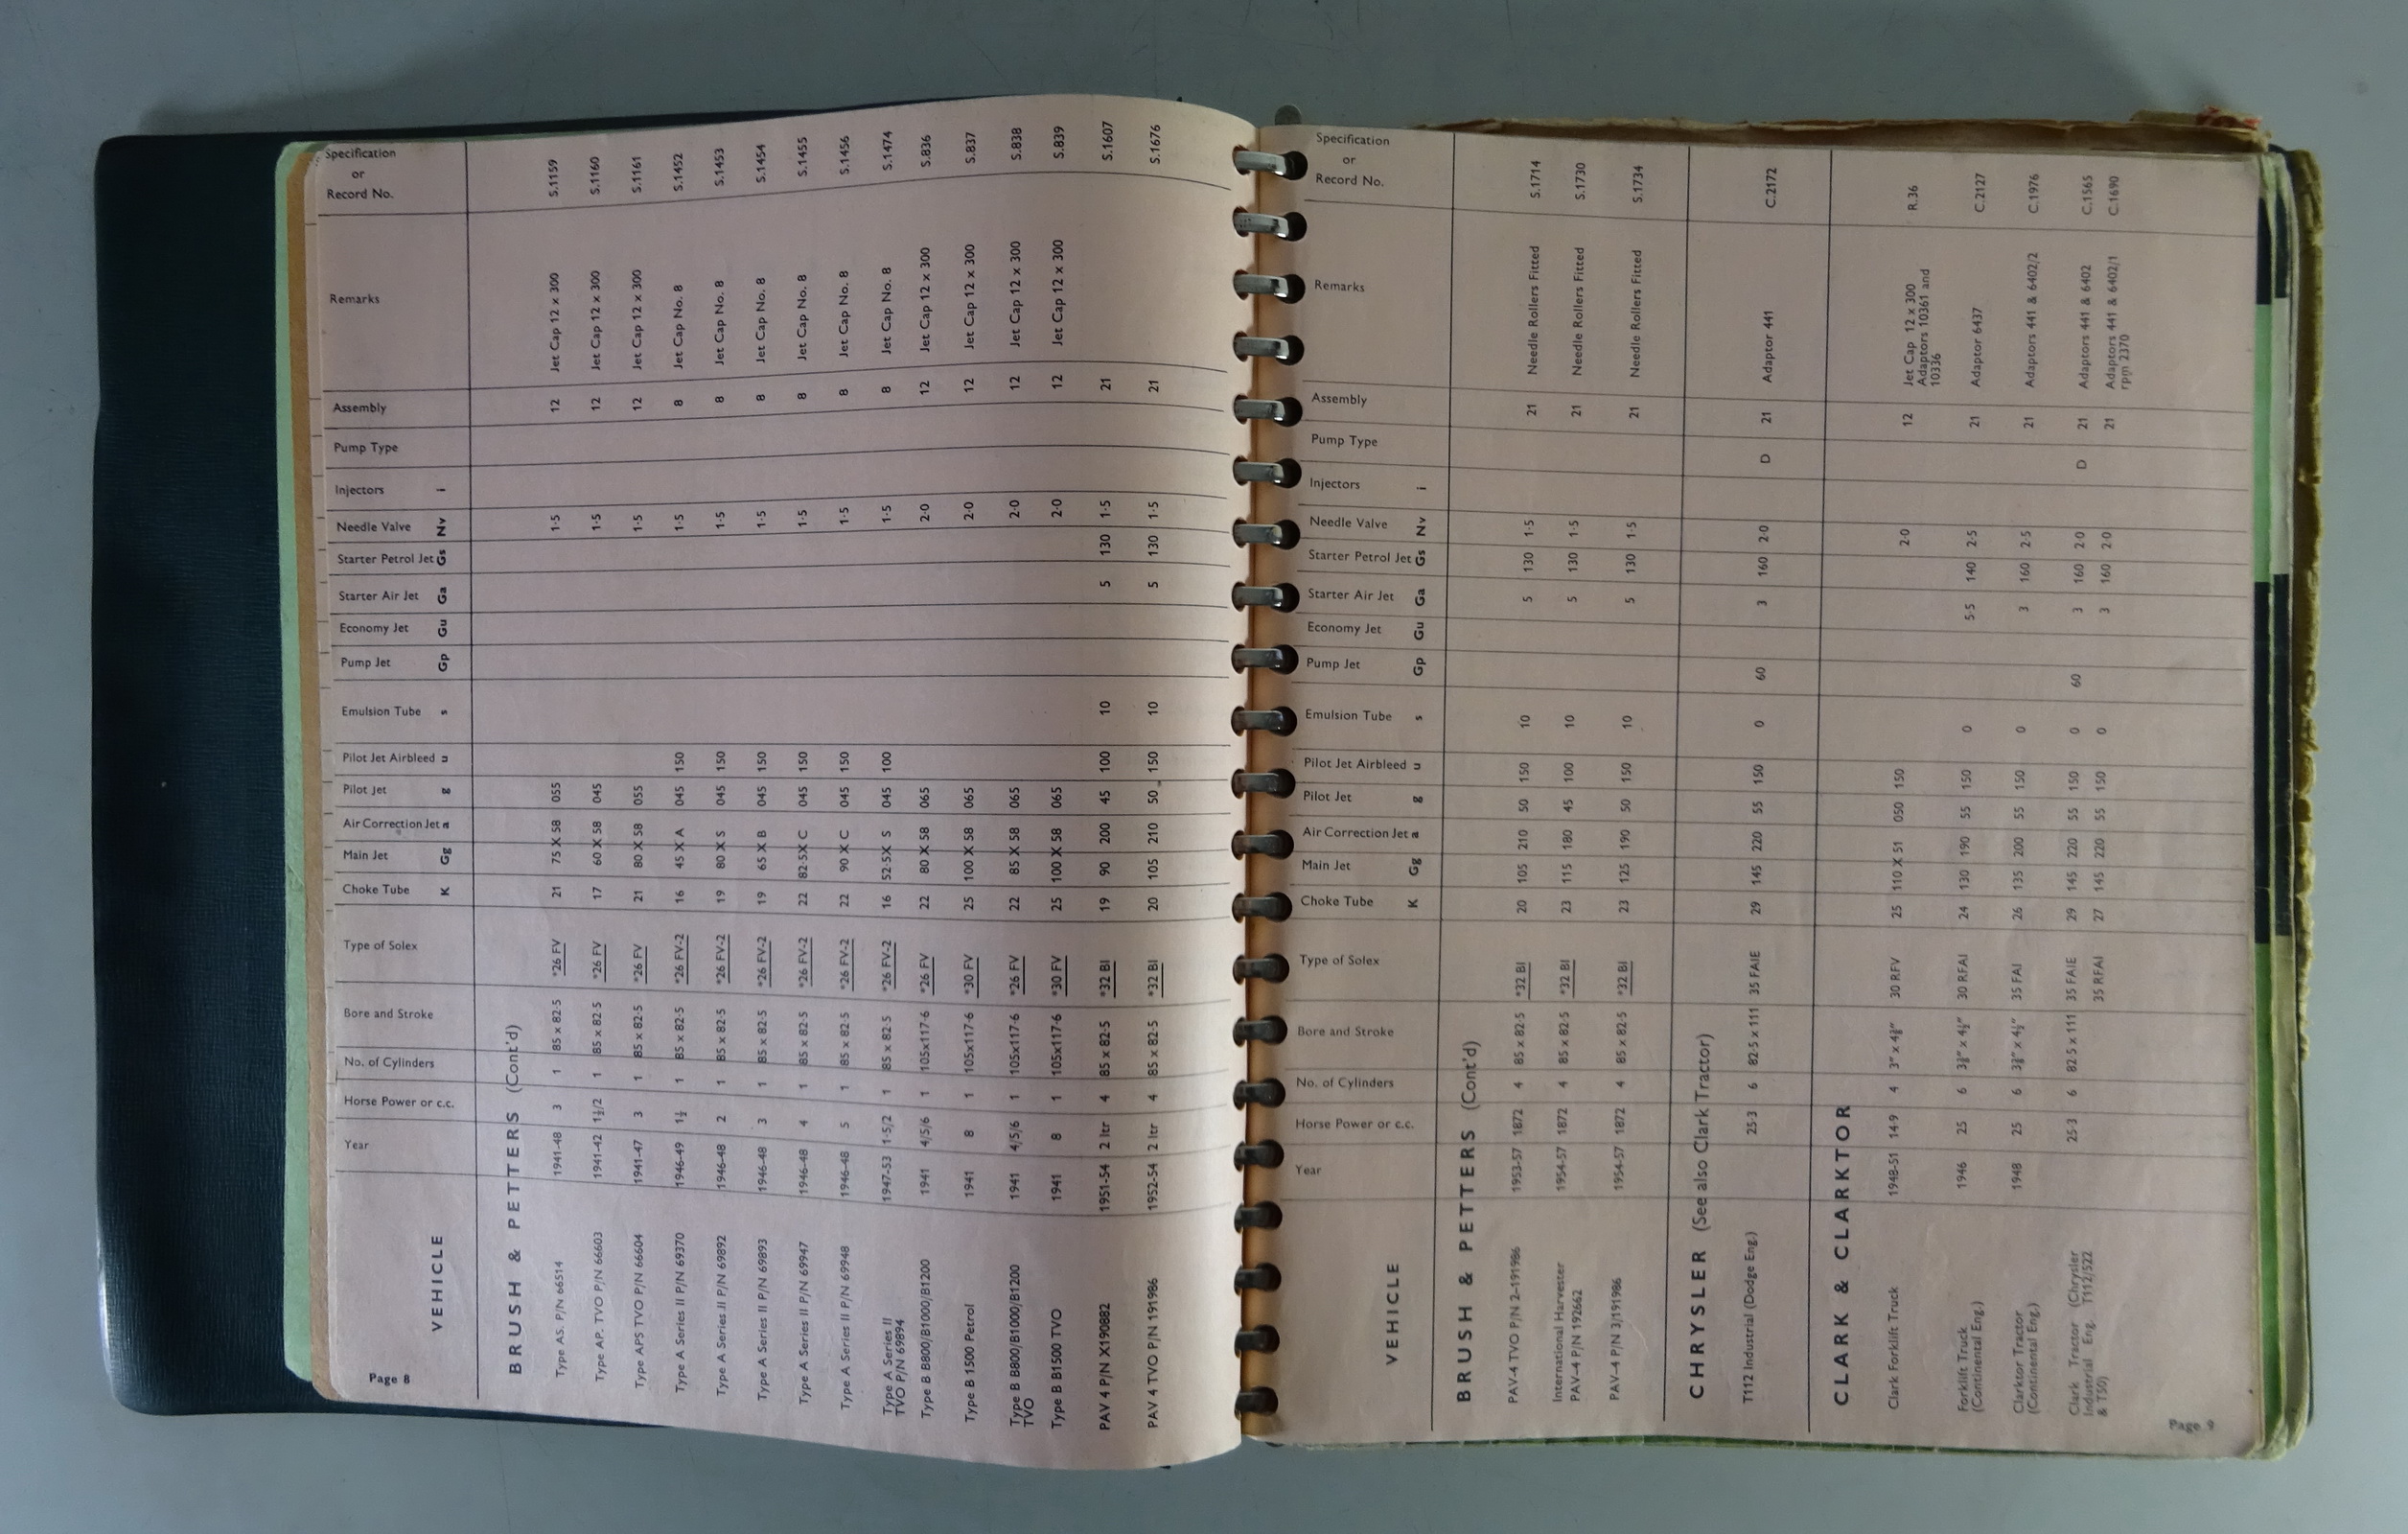 Page 8
VEHICLE Year Horse Power or c.c. No. of Cylinders Bore and Stroke Type of Solex Choke Tube K Main Jet Gg Air Correction Jet a Pilot Jet g Pilot Jet Airbleed u Emulsion Tube s Pump Jet Gp Economy Jet Gu Starter Air Jet Ga Starter Petrol Jet Gs Needle Valve Nv Injectors i Pump Type Assembly Remarks Specification or Record No.
BRUSH & PETTERS (Cont'd)
Type AS. P/N 66514 1941-48 3 1 85 x 82·5 *26 FV 21 75 X 58 055 1·5 12 Jet Cap 12 x 300 S.1159
Type AP. TVO P/N 66603 1941-42 1½/2 1 85 x 82·5 *26 FV 17 60 X 58 045 1·5 12 Jet Cap 12 x 300 S.1160
Type APS TVO P/N 66604 1941-47 3 1 85 x 82·5 *26 FV 21 80 X 58 055 1·5 12 Jet Cap 12 x 300 S.1161
Type A Series II P/N 69370 1946-49 1½ 1 85 x 82·5 *26 FV-2 16 45 X A 045 150 1·5 8 Jet Cap No. 8 S.1452
Type A Series II P/N 69892 1946-48 2 1 85 x 82·5 *26 FV-2 19 80 X S 045 150 1·5 8 Jet Cap No. 8 S.1453
Type A Series II P/N 69893 1946-48 3 1 85 x 82·5 *26 FV-2 19 65 X B 045 150 1·5 8 Jet Cap No. 8 S.1454
Type A Series II P/N 69947 1946-48 4 1 85 x 82·5 *26 FV-2 22 82·5X C 045 150 1·5 8 Jet Cap No. 8 S.1455
Type A Series II P/N 69948 1946-48 5 1 85 x 82·5 *26 FV-2 22 90 X C 045 150 1·5 8 Jet Cap No. 8 S.1456
Type A Series II 1947-53 1·5/2 1 85 x 82·5 *26 FV-2 16 52·5X S 045 100 1·5 8 Jet Cap No. 8 S.1474
TVO P/N 69894
Type B B800/B1000/B1200 1941 4/5/6 1 105x117·6 *26 FV 22 80 X 58 065 2·0 12 Jet Cap 12 x 300 S.836
Type B 1500 Petrol 1941 8 1 105x117·6 *30 FV 25 100 X 58 065 2·0 12 Jet Cap 12 x 300 S.837
Type B B800/B1000/B1200 1941 4/5/6 1 105x117·6 *26 FV 22 85 X 58 065 2·0 12 Jet Cap 12 x 300 S.838
TVO
Type B B1500 TVO 1941 8 1 105x117·6 *30 FV 25 100 X 58 065 2·0 12 Jet Cap 12 x 300 S.839
PAV 4 P/N X190882 1951-54 2 ltr 4 85 x 82·5 *32 BI 19 90 200 45 100 10 5 130 1·5 21 S.1607
PAV 4 TVO P/N 191986 1952-54 2 ltr 4 85 x 82·5 *32 BI 20 105 210 50 150 10 5 130 1·5 21 S.1676
VEHICLE Year Horse Power or c.c. No. of Cylinders Bore and Stroke Type of Solex Choke Tube K Main Jet Gg Air Correction Jet a Pilot Jet g Pilot Jet Airbleed u Emulsion Tube s Pump Jet Gp Economy Jet Gu Starter Air Jet Ga Starter Petrol Jet Gs Needle Valve Nv Injectors i Pump Type Assembly Remarks Specification or Record No.
BRUSH & PETTERS (Cont'd)
PAV-4 TVO P/N 2-191986 1953-57 1872 4 85 x 82·5 *32 BI 20 105 210 50 150 10 5 130 1·5 21 Needle Rollers Fitted S.1714
International Harvester 1954-57 1872 4 85 x 82·5 *32 BI 23 115 180 45 100 10 5 130 1·5 21 Needle Rollers Fitted S.1730
PAV-4 P/N 192662
PAV-4 P/N 3/191986 1954-57 1872 4 85 x 82·5 *32 BI 23 125 190 50 150 10 5 130 1·5 21 Needle Rollers Fitted S.1734
CHRYSLER (See also Clark Tractor)
T112 Industrial (Dodge Eng.) 25·3 6 82·5 x 111 35 FAIE 29 145 220 55 150 0 60 3 160 2·0 D 21 Adaptor 441 C.2172
CLARK & CLARKTOR
Clark Forklift Truck 1948-51 14·9 4 3" x 4⅜" 30 RFV 25 110 X 51 050 150 2·0 12 Jet Cap 12 x 300 R.36
Adaptors 10361 and
10336
Forklift Truck 1946 25 6 3⅜" x 4½" 30 RFAI 24 130 190 55 150 0 5·5 140 2·5 21 Adaptor 6437 C.2127
(Continental Eng.)
Clarktor Tractor 1948 25 6 3⅜" x 4½" 35 FAI 26 135 200 55 150 0 3 160 2·5 21 Adaptors 441 & 6402/2 C.1976
(Continental Eng.)
Clark Tractor (Chrysler 25·3 6 82·5 x 111 35 FAIE 29 145 220 55 150 0 60 3 160 2·0 D 21 Adaptors 441 & 6402 C.1565
Industrial Eng. T112/522 35 RFAI 27 145 220 55 150 0 3 160 2·0 21 Adaptors 441 & 6402/1 C.1690
& T50) rpm 2370
Page 9